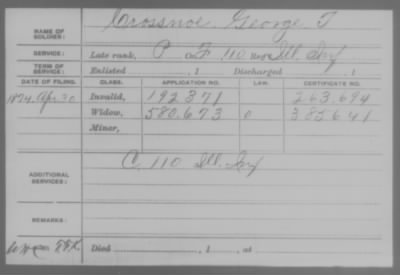 NAME OF SOLDIER: Crossnoe, George T
SERVICE: Late rank, P Co F, 110 Reg't Ill. Inf
TERM OF SERVICE: Enlisted , 1 Discharged , 1
DATE OF FILING. CLASS. APPLICATION NO. LAW. CERTIFICATE NO.
1874, Apr 20 Invalid, 192371 263.694
Widow, 580,673 385641
Minor,
ADDITIONAL SERVICES: C. 110 Ill. Inf
REMARKS:
Died , 1 , at